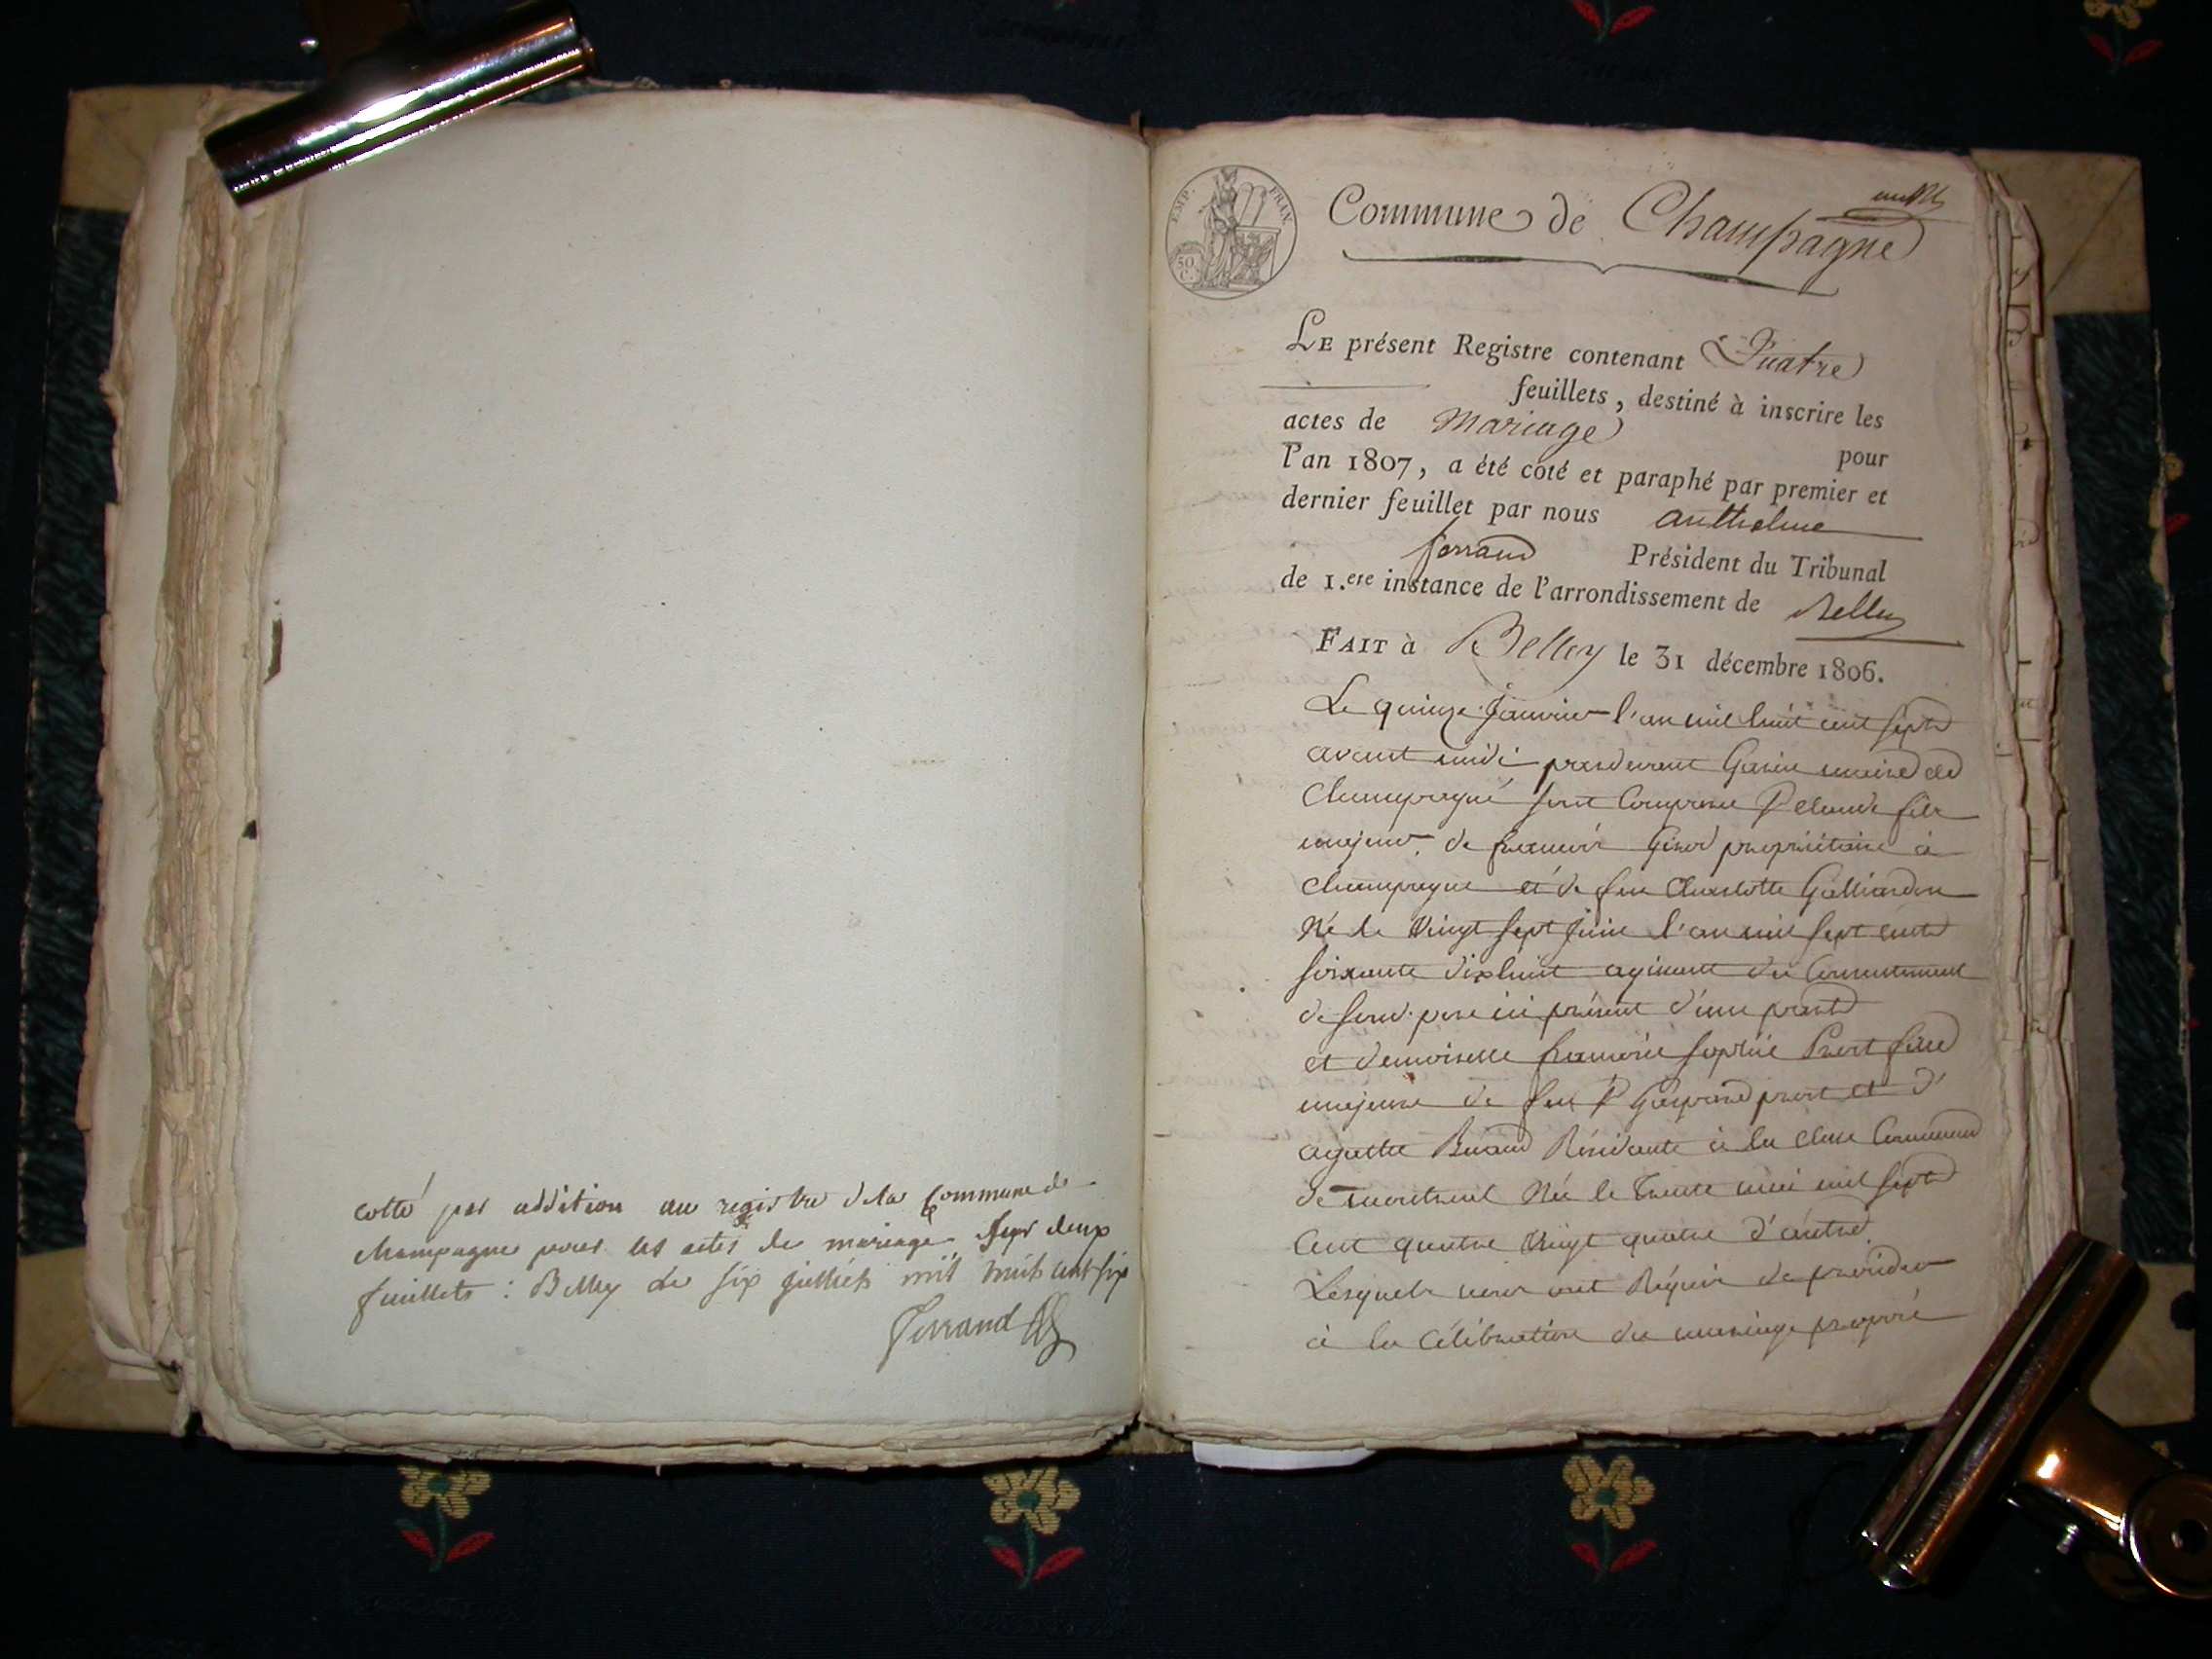 cotté par addition au registre de la Commune de
champagne pour les actes de mariage sur deux
feuillets : Belley le six juillet mil huit cent six
Ferrand
EMP. FRAN.
50 C.
Commune de Champagne
LE présent Registre contenant Quatre
feuillets, destiné à inscrire les
actes de Mariage pour
l'an 1807, a été coté et paraphé par premier et
dernier feuillet par nous anthelme
ferrand Président du Tribunal
de 1.ere instance de l'arrondissement de Belley
FAIT à Belley le 31 décembre 1806.
Le quinze janvier l'an mil huit cent sept
avant midi pardevant maire de
Champagne sont Comparu Sr Claude fils
majeur de françois propriétaire à
champagne et de feu Charlotte
Né le vingt sept juin l'an mil sept cent
soixante dixhuit agissant du Consentement
de son père ici présent d'une part
et demoiselle sophie fille
majeure de feu Sr Gaspard et d'
agathe Résidante à la Commune
de Née le trente mai mil sept
Cent quatre vingt quatre d'autre
Lesquels nous ont Réquis de procéder
à la Célébration du mariage